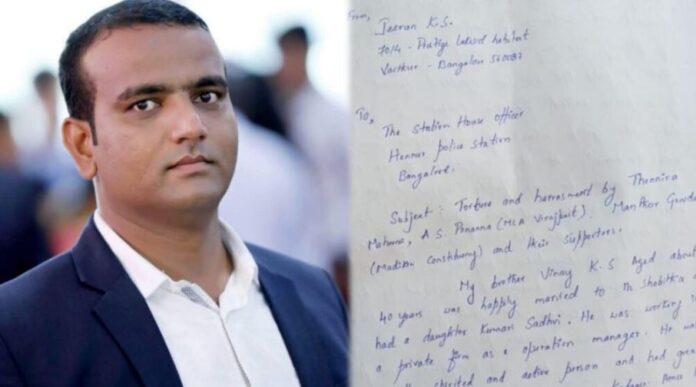 From,
Jeevan K.S.
70/4 - Habitat
Varthur - Bangalore 560087
To,
The Station House officer
Hennur police station
Bangalore.
Subject : Torture and harrasment by Thennira
Maheena, A.S. Ponnanna (MLA Virajpait)
(Madikeri Constituency) and their supporters.
My brother Vinay K.S Aged about
40 years was happily married to
had a daughter Kumari Sadhvi. He was working
a private firm as a operation manager. He wa
spirited and active person and had